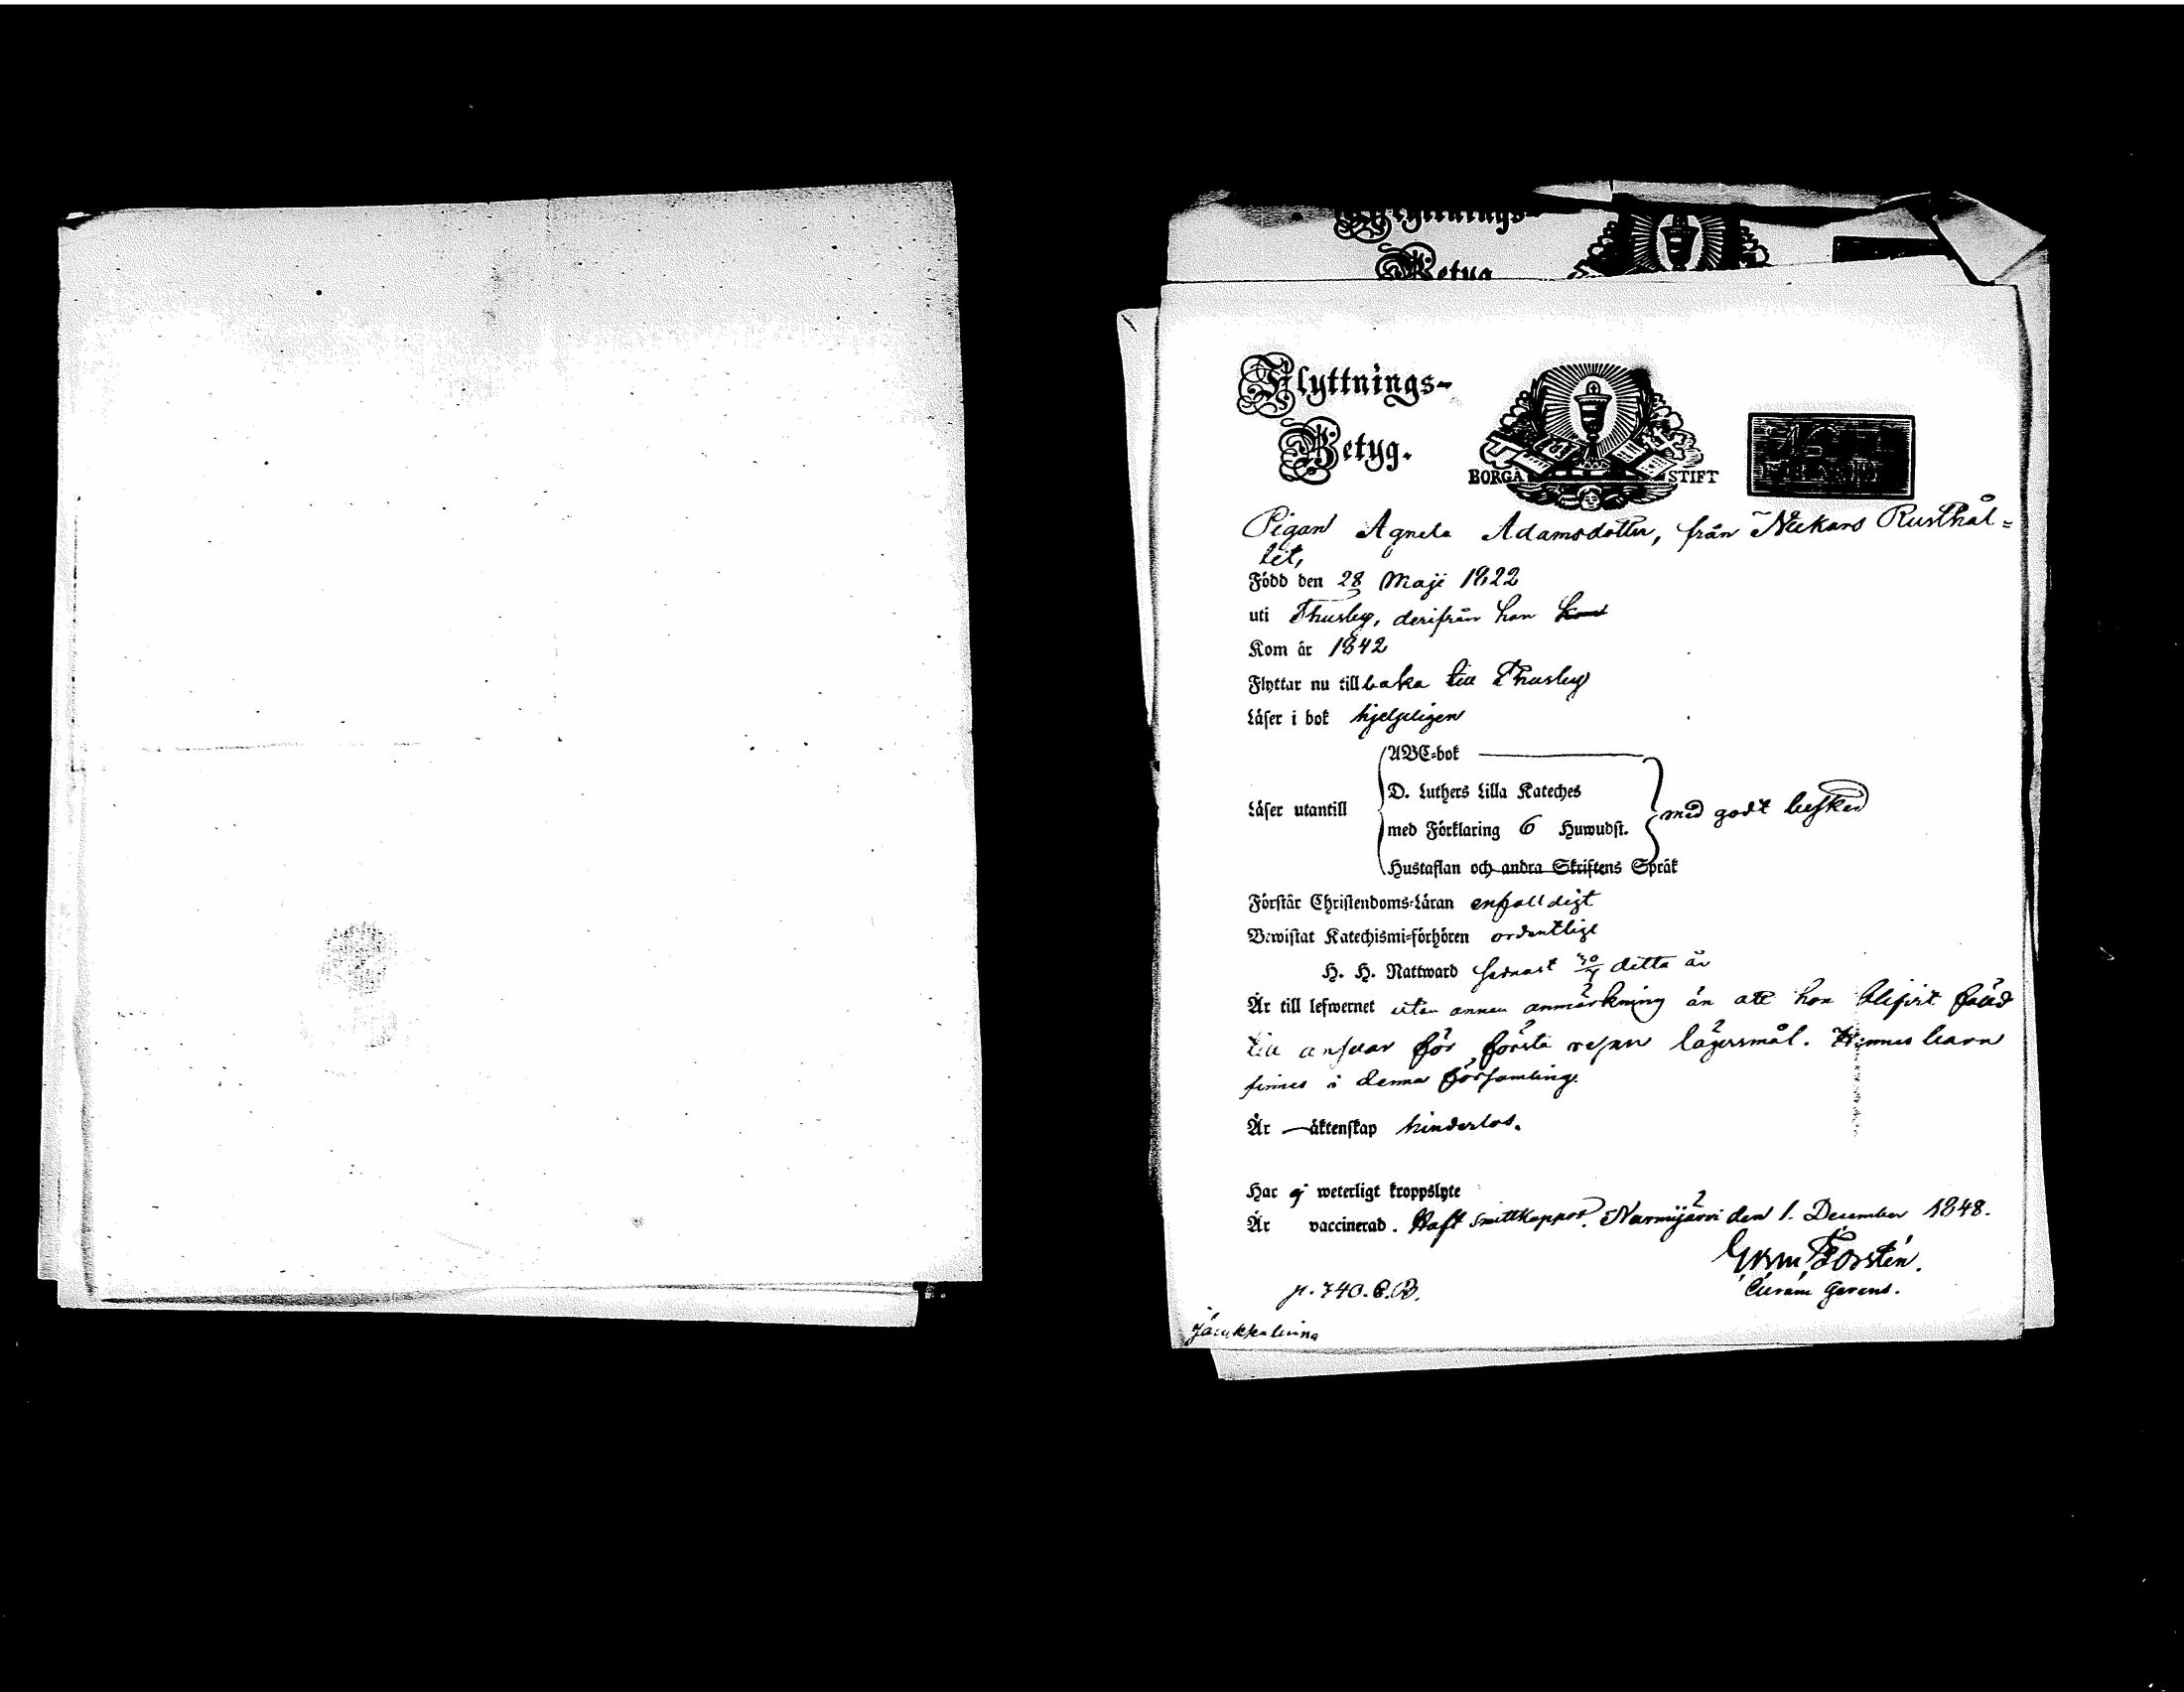 Flyttnings-
Betyg.
BORGÅ STIFT
Pigan Agneta Adamsdotter, från Nickars Rusthål=
let,
Född den 28 Maji 1822
uti Thusby, derifrån hon
Kom år 1842
Flyttar nu tillbaka till Thusby
Läser i bok hjelpligen
ABC=bok
D. Luthers Lilla Kateches
Läser utantill
med Förklaring 6 Huwudst.
med godt besked
Hustaflan och andra Skriftens Språk
Förstår Christendoms=Läran enfalldigt
Bewistat Katechismi=förhören ordentligt
H. H. Nattward senast detta år
Är till lefwernet utan annan anmärkning än att hon blifvit fälld
till ansvar för första resan lägersmål. Hennes barn
finnes i denna församling.
Är äktenskap hinderlös.
Har ej weterligt kroppslyte
Är vaccinerad. Haft smittkoppor. Nurmijärvi den 1. December 1848.
Forstén.
Curam Gerens.
p. 740. C.B.